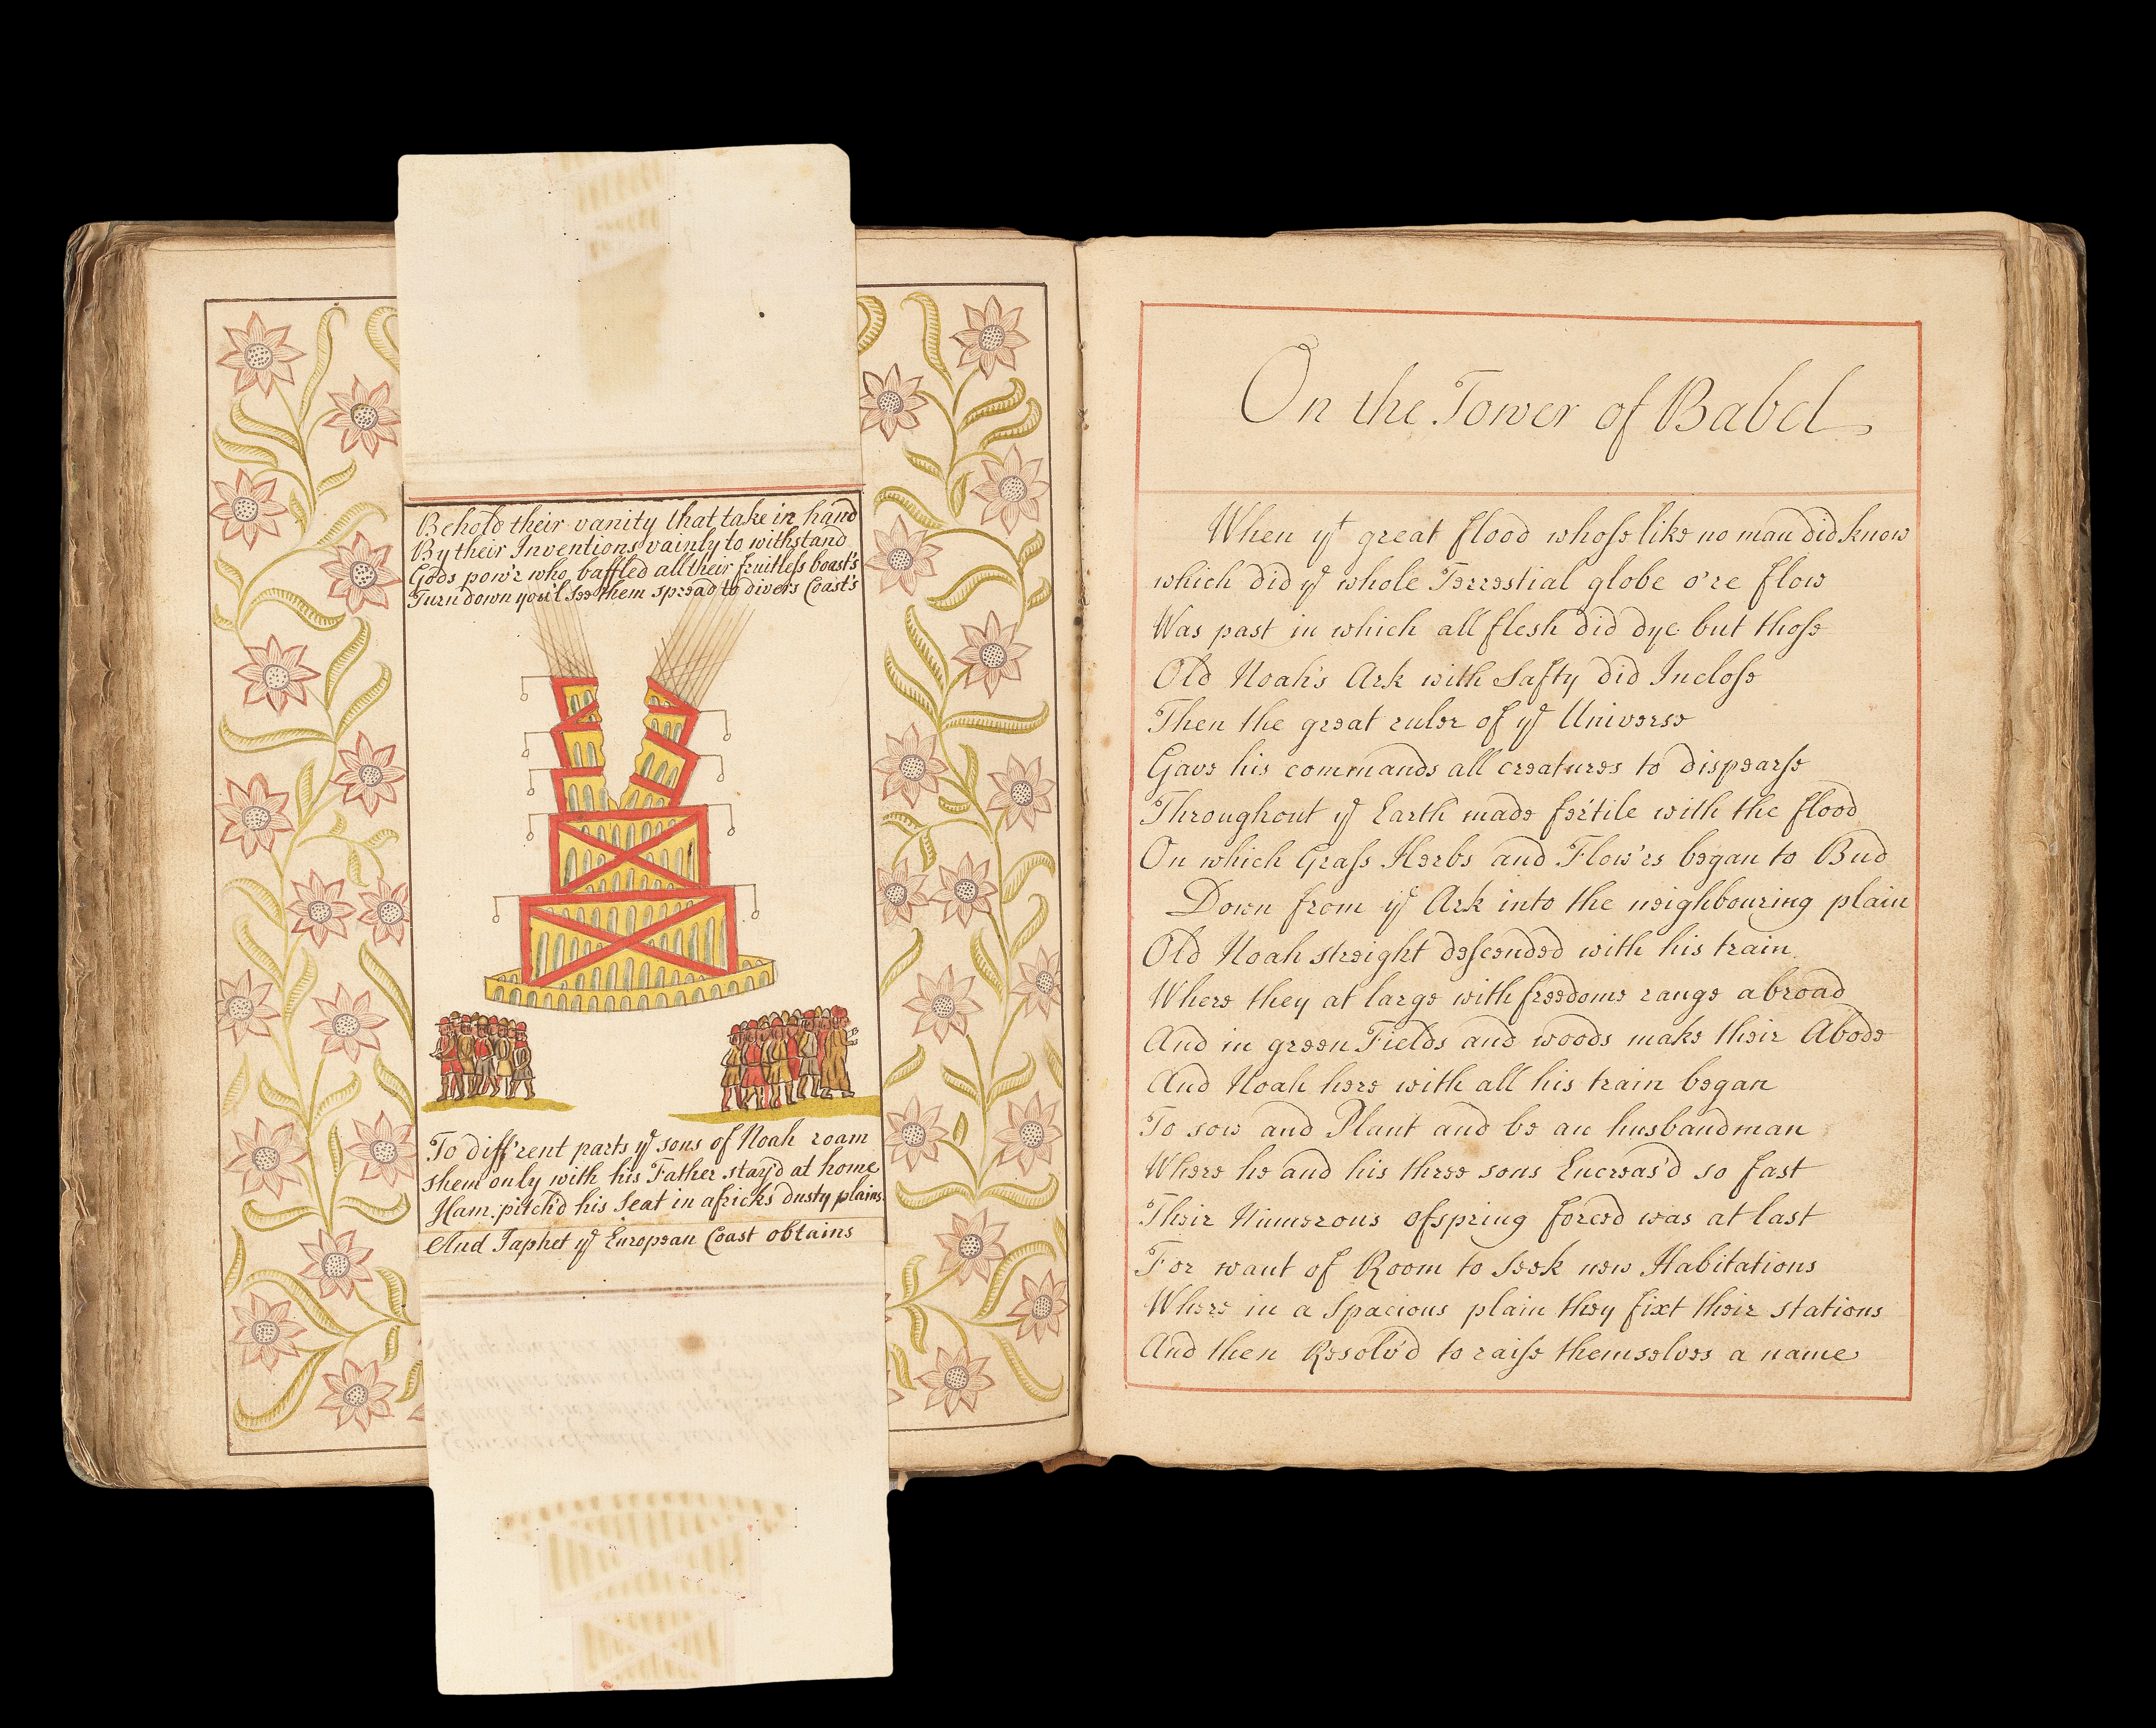 Behold their vanity that take in hand
By their Inventions vainly to withstand
Gods pow'r who baffled all their fruitleſs boast's
Turn down you'l See them spread to divers Coast's
To diff'rent parts yᵉ sons of Noah roam
Shem only with his Father stay'd at home
Ham pitch'd his Seat in africks dusty plains
And Japhet yᵉ European Coast obtains
On the Tower of Babel
When yᵗ great flood whoſe like no man did know
which did yᵉ whole Terrestial globe o're flow
Was past in which all flesh did dye but thoſe
Old Noah's Ark with Safty did Incloſe
Then the great ruler of yᵉ Universe
Gave his commands all creatures to dispearſe
Throughout yᵉ Earth made fertile with the flood
On which Graſs Herbs and Flow'rs began to Bud
Down from yᵉ Ark into the neighbouring plain
Old Noah streight deſcended with his train
Where they at large with freedome range abroad
And in green Fields and woods make their Abode
And Noah here with all his train began
To sow and Plant and be an husbandman
Where he and his three sons Encreas'd so fast
Their Numerous ofspring forced was at last
For want of Room to Seek new Habitations
Where in a Spacious plain they fixt their stations
And then Resolv'd to raiſe themselves a name